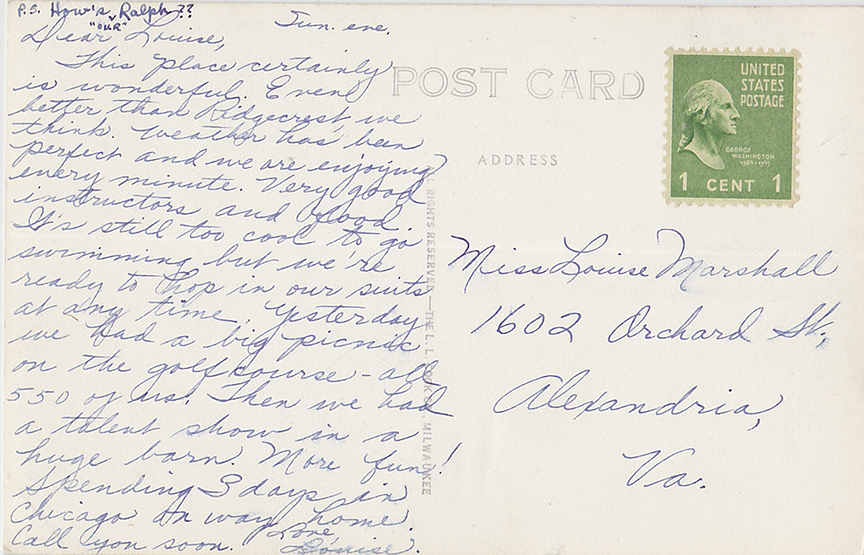 P.S. How's "our" Ralph??
Sun. eve.
Dear Louise,
This place certainly
is wonderful. Even
better than Ridgecrest we
think. Weather has been
perfect and we are enjoying
every minute. Very good
instructors and food.
It's still too cool to go
swimming but we're
ready to hop in our suits
at any time. Yesterday
we had a big picnic
on the golf course - all
550 of us. Then we had
a talent show in a
huge barn. More fun!
Spending 3 days in
Chicago on way home.
Call you soon. Love,
Louise.
POST CARD
ADDRESS
UNITED
STATES
POSTAGE
GEORGE
WASHINGTON
1789-1797
1 CENT 1
RIGHTS RESERVED—THE L. L. COOK CO. MILWAUKEE
Miss Louise Marshall
1602 Orchard St.,
Alexandria,
Va.